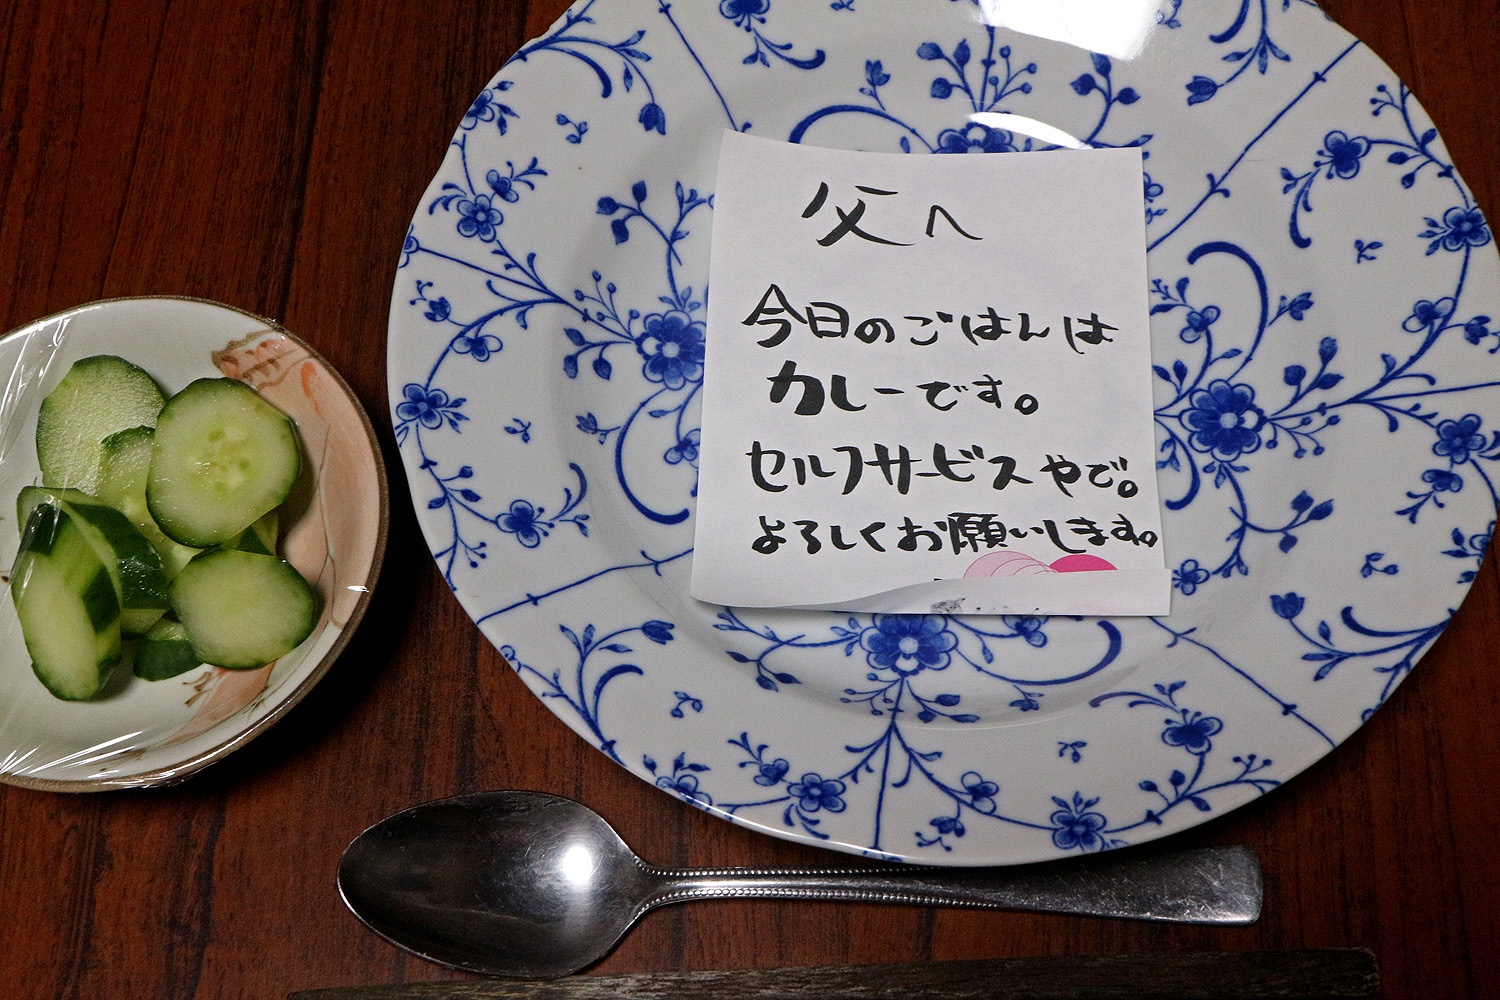 父へ
今日のごはんは
カレーです。
セルフサービスやで。
よろしくお願いします。